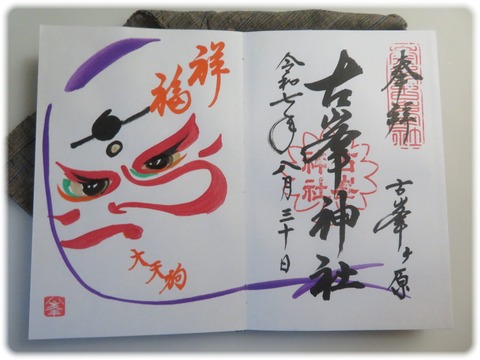 奉拝
古峯ヶ原
古峯神社
令和七年八月三十日
祥福
大天狗